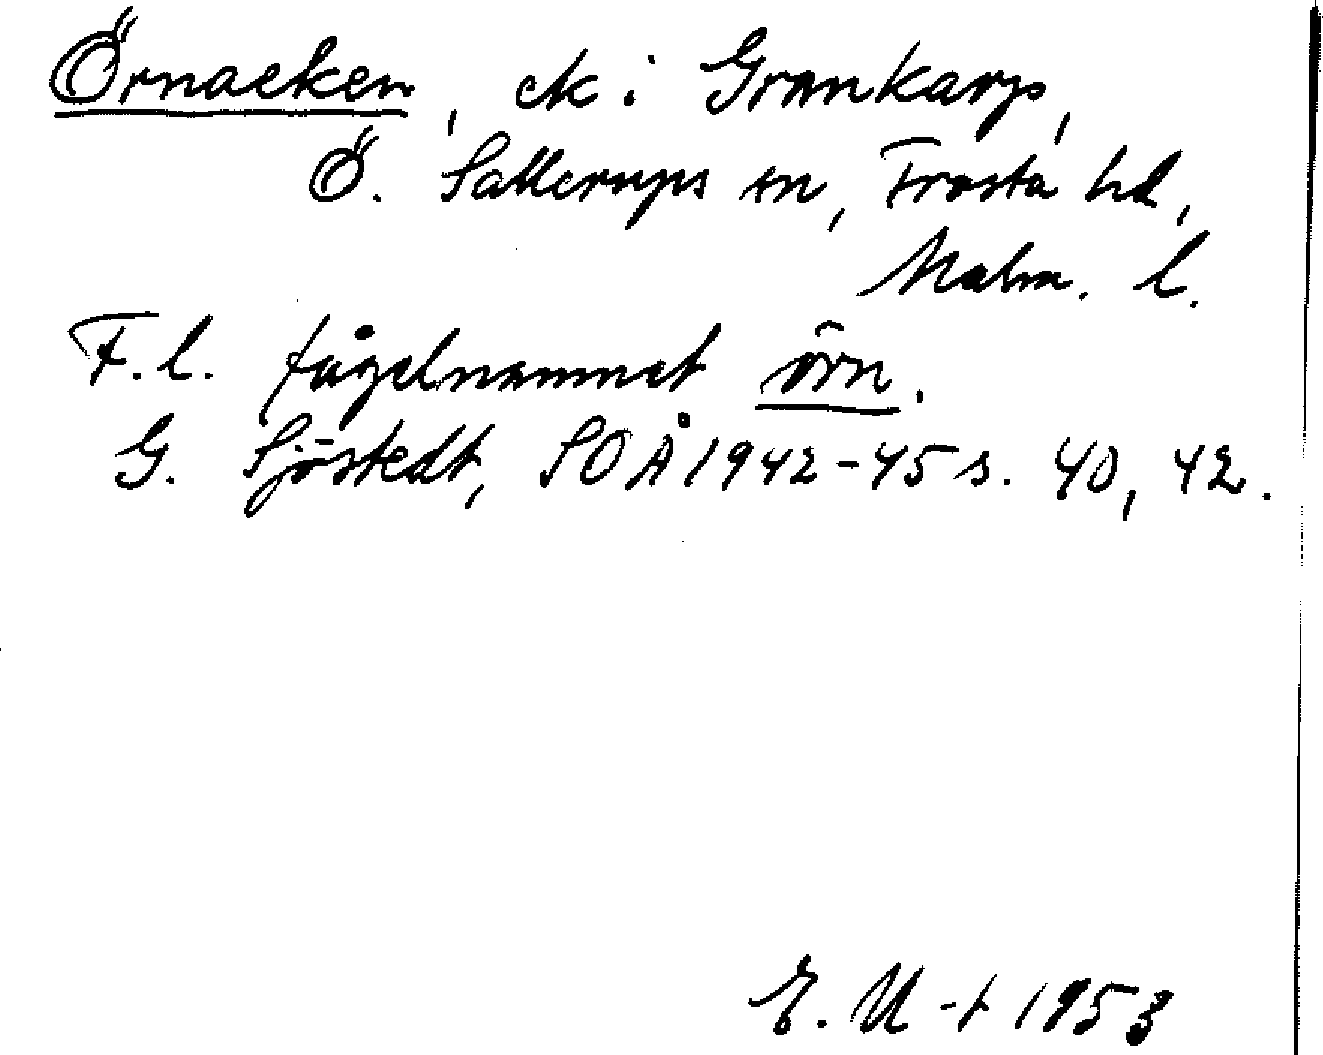 Örnaeken, ek i Grankarp,
Ö. Sallerups sn, Frosta hd,
Malm. l.
F.l. fågelnamnet örn.
G. Sjöstedt, SOÅ 1942-45 s. 40, 42.
E. U-t 1953